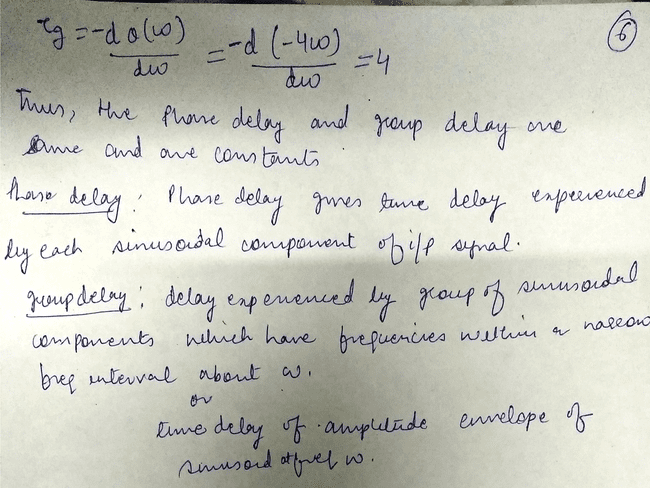 τg = -dθ(ω)/dω = -d(-4ω)/dω = 4
6
Thus, the Phase delay and group delay are
same and are constants
Phase delay: Phase delay gives time delay experienced
by each sinusoidal component of i/p signal.
group delay: delay experienced by group of sinusoidal
components which have frequencies within a narrow
freq interval about ω.
or
time delay of amplitude envelope of
sinusoid at freq ω.